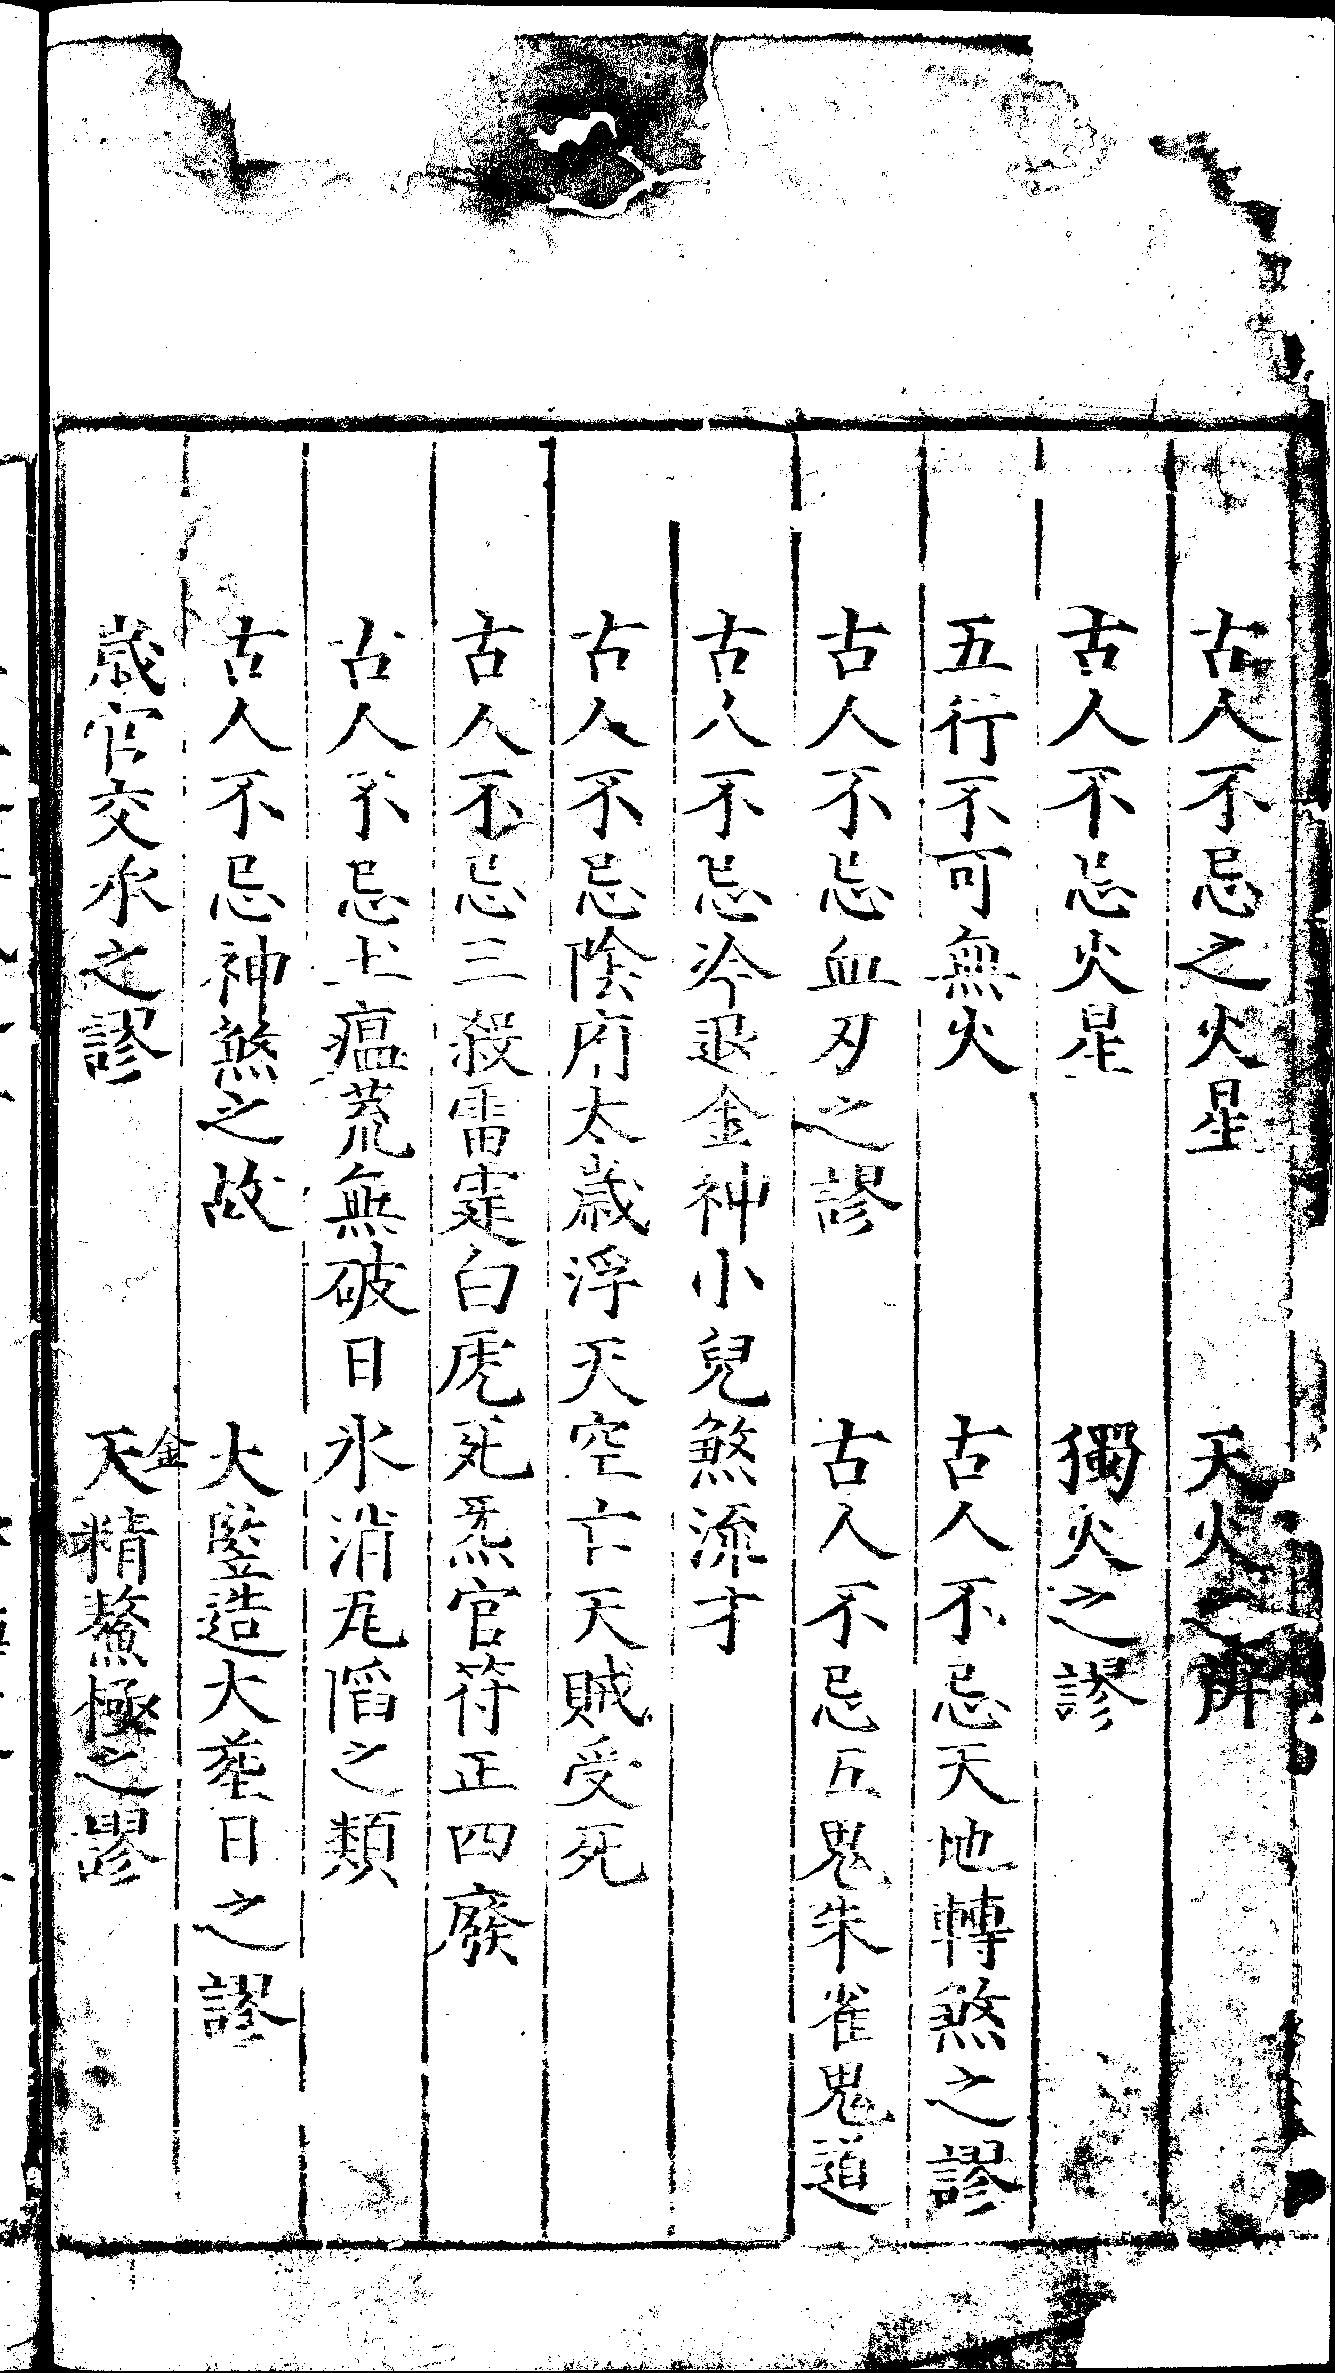 古人不忌之火星　天火之辨
古人不忌火星　獨火之謬
五行不可無火　古人不忌天地轉煞之謬
古人不忌血刃之謬　古人不忌五鬼朱雀鬼道
古人不忌冷退金神小兒煞流才
古人不忌陰府太歲浮天空亡天賊受死
古人不忌三殺雷霆白虎死炁官符正四廢
古人不忌土瘟荒無破日氷消瓦陷之類
古人不忌神煞之故　大竪造大葬日之謬
歲官交承之謬　天金精鰲極之謬